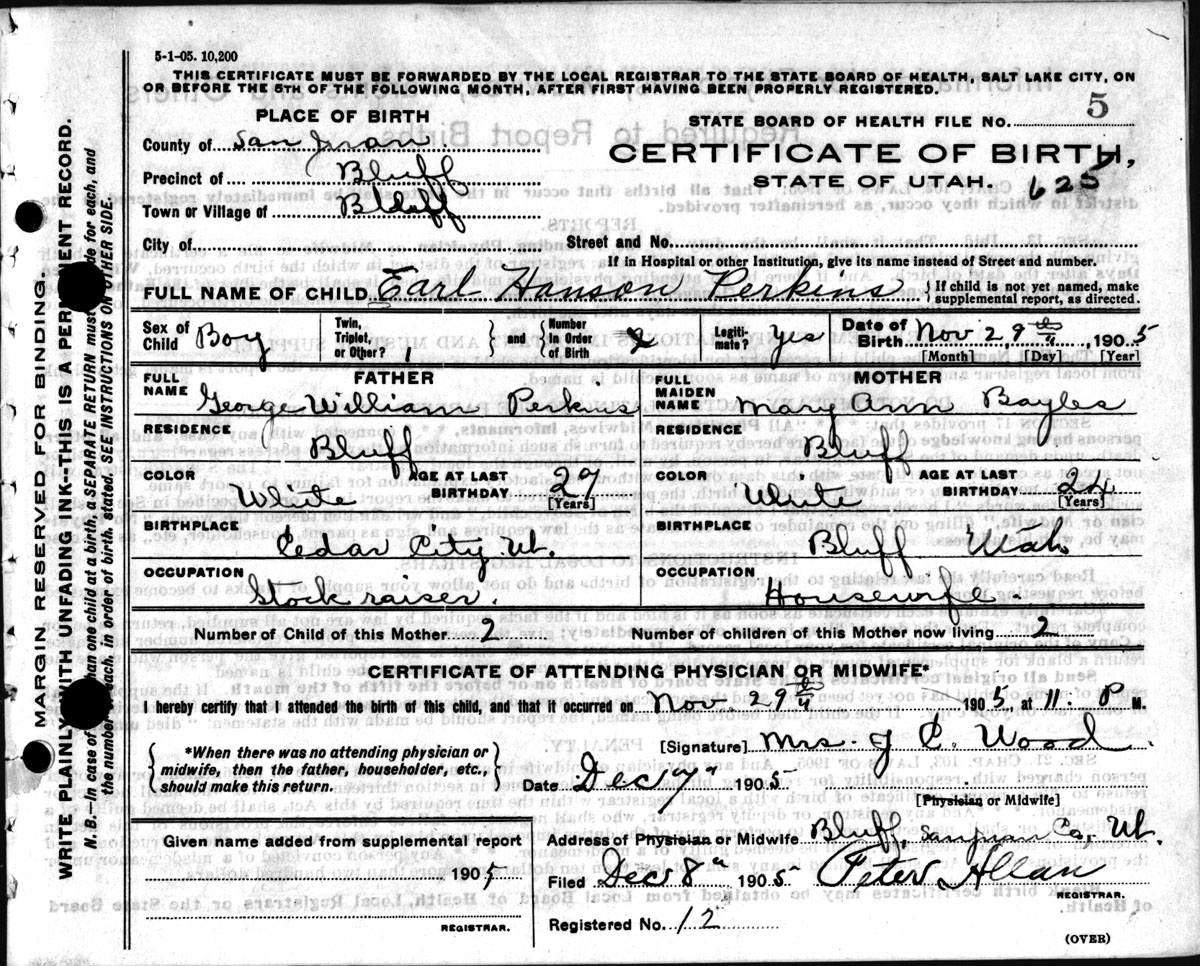 5-1-05. 10,200
THIS CERTIFICATE MUST BE FORWARDED BY THE LOCAL REGISTRAR TO THE STATE BOARD OF HEALTH, SALT LAKE CITY, ON
OR BEFORE THE 5TH OF THE FOLLOWING MONTH, AFTER FIRST HAVING BEEN PROPERLY REGISTERED.
PLACE OF BIRTH
County of San Juan
Precinct of Bluff
Town or Village of Bluff
City of
STATE BOARD OF HEALTH FILE NO. 5
CERTIFICATE OF BIRTH,
STATE OF UTAH. 625
Street and No.
If in Hospital or other Institution, give its name instead of Street and number.
FULL NAME OF CHILD Earl Hanson Perkins { If child is not yet named, make
supplemental report, as directed.
Sex of Child Boy
Twin, Triplet, or Other? 1 } and { Number in Order of Birth 2
Legiti- mate? Yes
Date of Birth Nov 29th, 1905
[Month] [Day] [Year]
FATHER
FULL NAME George William Perkins
RESIDENCE Bluff
COLOR White
AGE AT LAST BIRTHDAY 27 [Years]
BIRTHPLACE Cedar City Ut.
OCCUPATION Stock raiser.
MOTHER
FULL MAIDEN NAME Mary Ann Bayles
RESIDENCE Bluff
COLOR White
AGE AT LAST BIRTHDAY 24 [Years]
BIRTHPLACE Bluff Utah
OCCUPATION Housewife.
Number of Child of this Mother 2
Number of children of this Mother now living 2
CERTIFICATE OF ATTENDING PHYSICIAN OR MIDWIFE*
I hereby certify that I attended the birth of this child, and that it occurred on Nov. 29th 1905, at 11. P M.
{ *When there was no attending physician or
midwife, then the father, householder, etc.,
should make this return. }
[Signature] Mrs. J C. Wood
Date Dec 7" 1905
[Physician or Midwife]
Given name added from supplemental report
1905
REGISTRAR.
Address of Physician or Midwife Bluff, San Juan Co, Ut.
Filed Dec 8" 1905 Peter Allan
REGISTRAR.
Registered No. 12
(OVER)
MARGIN RESERVED FOR BINDING.
WRITE PLAINLY WITH UNFADING INK--THIS IS A PERMANENT RECORD.
N. B.--In case of than one child at a birth, a SEPARATE RETURN must de for each, and
the number each, in order of birth, stated. SEE INSTRUCTIONS ON OTHER SIDE.